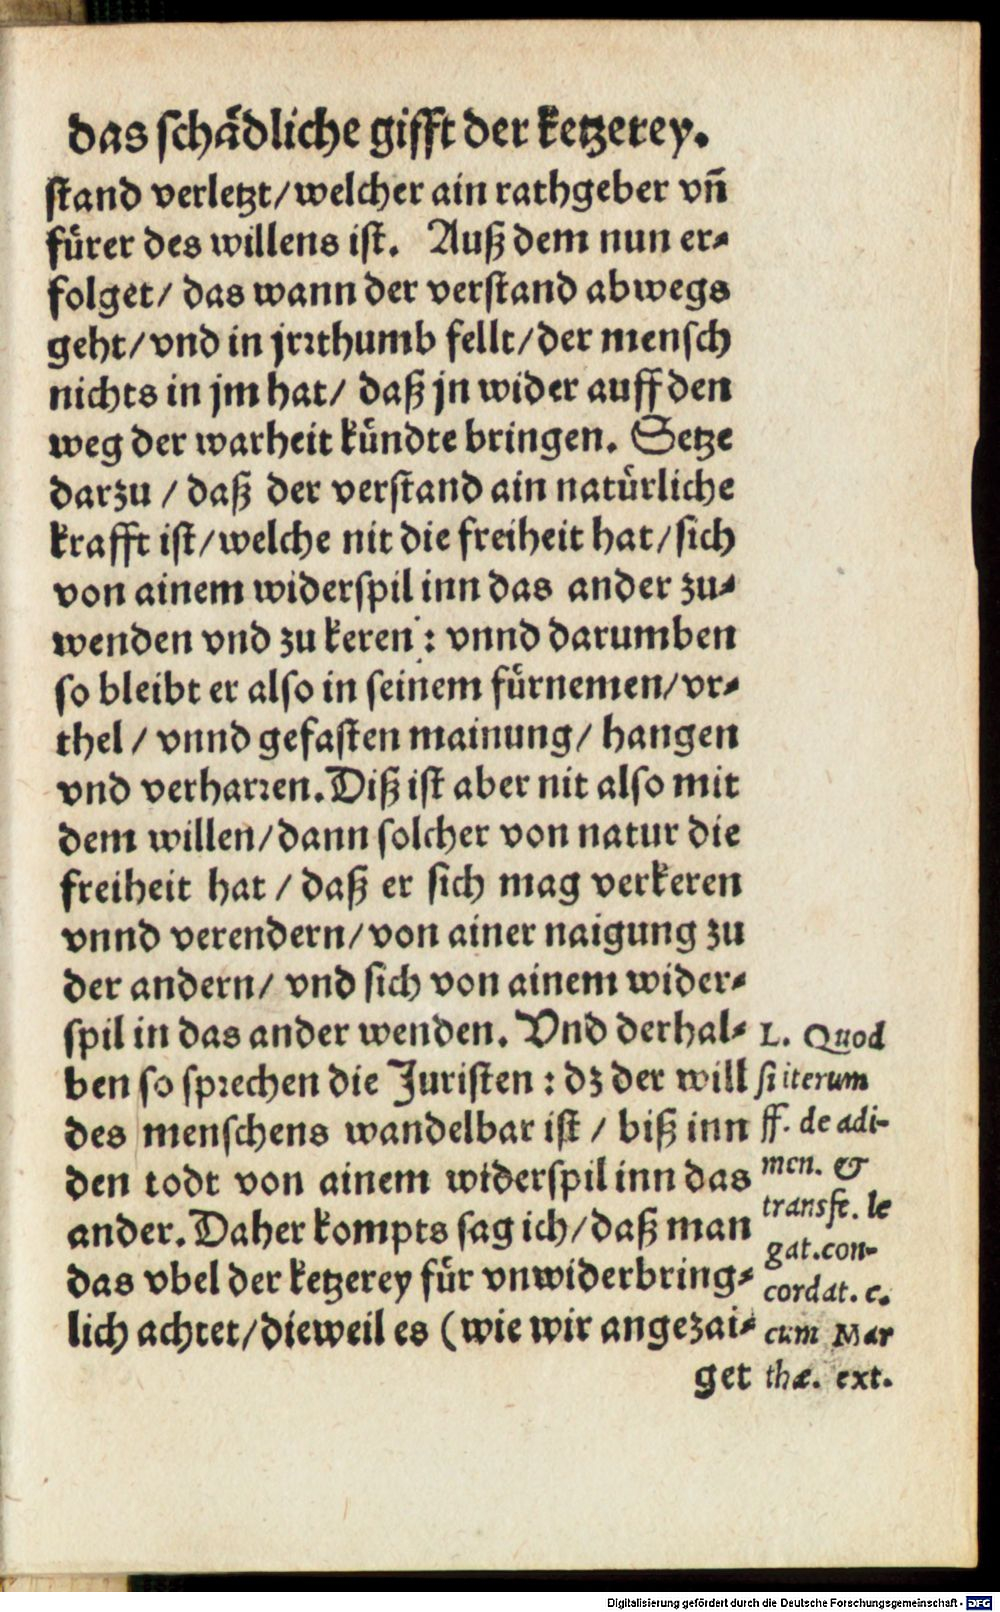 das schådliche gifft der ketzerey.
stand verletzt/welcher ain rathgeber vñ
fůrer des willens ist. Auß dem nun er-
folget/ das wann der verstand abwegs
geht/vnd in jrrthumb fellt/der mensch
nichts in jm hat/ daß jn wider auff den
weg der warheit kůndte bringen. Setze
darzu / daß der verstand ain natůrliche
krafft ist/welche nit die freiheit hat/sich
von ainem widerspil inn das ander zu-
wenden vnd zu keren : vnnd darumben
so bleibt er also in seinem fůrnemen/vr-
thel / vnnd gefasten mainung/ hangen
vnd verharren. Diß ist aber nit also mit
dem willen/dann solcher von natur die
freiheit hat / daß er sich mag verkeren
vnnd verendern/von ainer naigung zu
der andern/ vnd sich von ainem wider-
spil in das ander wenden. Vnd derhal-
ben so sprechen die Juristen : dz der will
des menschens wandelbar ist / biß inn
den todt von ainem widerspil inn das
ander. Daher kompts sag ich/daß man
das vbel der ketzerey fůr vnwiderbring-
lich achtet/dieweil es (wie wir angezai-
get
L. Quod
si iterum
ff. de adi-
men. &
transfe. le
gat. con-
cordat. c.
cum Mar
thæ. ext.
Digitalisierung gefördert durch die Deutsche Forschungsgemeinschaft - DFG